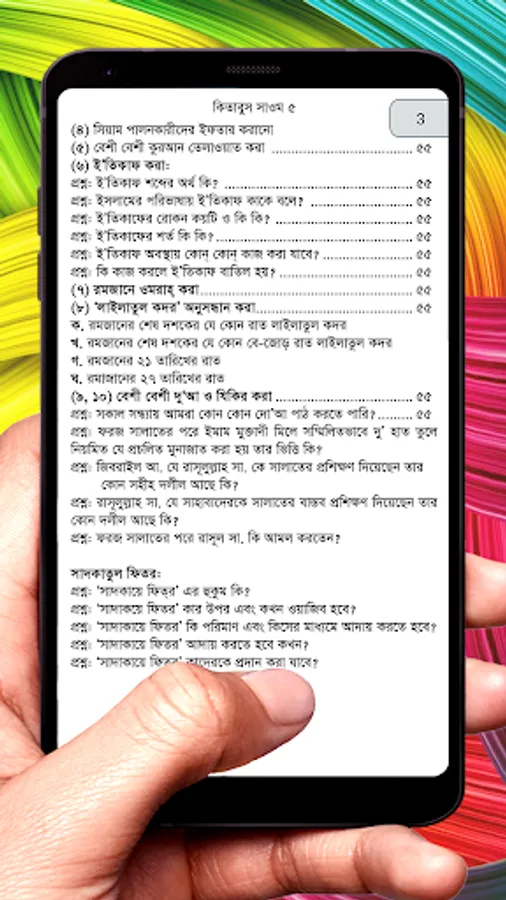 কিতাবুস সাওম ৫
3
(৪) সিয়াম পালনকারীদের ইফতার করানো
(৫) বেশী বেশী কুরআন তেলাওয়াত করা ........................ ৫৫
(৬) ই'তিকাফ করা:
প্রশ্ন: ই'তিকাফ শব্দের অর্থ কি? ........................ ৫৫
প্রশ্ন: ইসলামের পরিভাষায় ই'তিকাফ কাকে বলে? ........................ ৫৫
প্রশ্ন: ই'তিকাফের রোকন কয়টি ও কি কি? ........................ ৫৫
প্রশ্ন: ই'তিকাফের শর্ত কি কি? ........................ ৫৫
প্রশ্ন: ই'তিকাফ অবস্থায় কোন্ কোন্ কাজ করা যাবে? ........................ ৫৫
প্রশ্ন: কি কাজ করলে ই'তিকাফ বাতিল হয়? ........................ ৫৫
(৭) রমজানে ওমরাহ্ করা ........................ ৫৫
(৮) 'লাইলাতুল কদর' অনুসন্ধান করা ........................ ৫৫
ক. রমজানের শেষ দশকের যে কোন রাত লাইলাতুল কদর
খ. রমজানের শেষ দশকের যে কোন বে-জোড় রাত লাইলাতুল কদর
গ. রমজানের ২১ তারিখের রাত
ঘ. রমাজানের ২৭ তারিখের রাত
(৯, ১০) বেশী বেশী দু'আ ও যিকির করা ........................ ৫৫
প্রশ্ন: সকাল সন্ধ্যায় আমরা কোন কোন দো'আ পাঠ করতে পারি? ......... ৫৫
প্রশ্ন: ফরজ সালাতের পরে ইমাম মুক্তাদী মিলে সম্মিলিতভাবে দু' হাত তুলে
নিয়মিত যে প্রচলিত মুনাজাত করা হয় তার ভিত্তি কি?
প্রশ্ন: জিবরাইল আ. যে রাসূলুল্লাহ সা. কে সালাতের প্রশিক্ষণ দিয়েছেন তার
কোন সহীহ দলীল আছে কি?
প্রশ্ন: রাসূলুল্লাহ সা. যে সাহাবাদেরকে সালাতের বাস্তব প্রশিক্ষণ দিয়েছেন তার
কোন দলীল আছে কি?
প্রশ্ন: ফরজ সালাতের পরে রাসূল সা. কি আমল করতেন?
সাদকাতুল ফিতর:
প্রশ্ন: 'সাদকায়ে ফিত্র' এর হুকুম কি?
প্রশ্ন: 'সাদাকায়ে ফিতর' কার উপর এবং কখন ওয়াজিব হবে?
প্রশ্ন: 'সাদাকায়ে ফিতর' কি পরিমাণ এবং কিসের মাধ্যমে আদায় করতে হবে?
প্রশ্ন: 'সাদাকায়ে ফিতর' আদায় করতে হবে কখন?
প্রশ্ন: 'সাদাকায়ে ফিতর' কাদেরকে প্রদান করা যাবে?